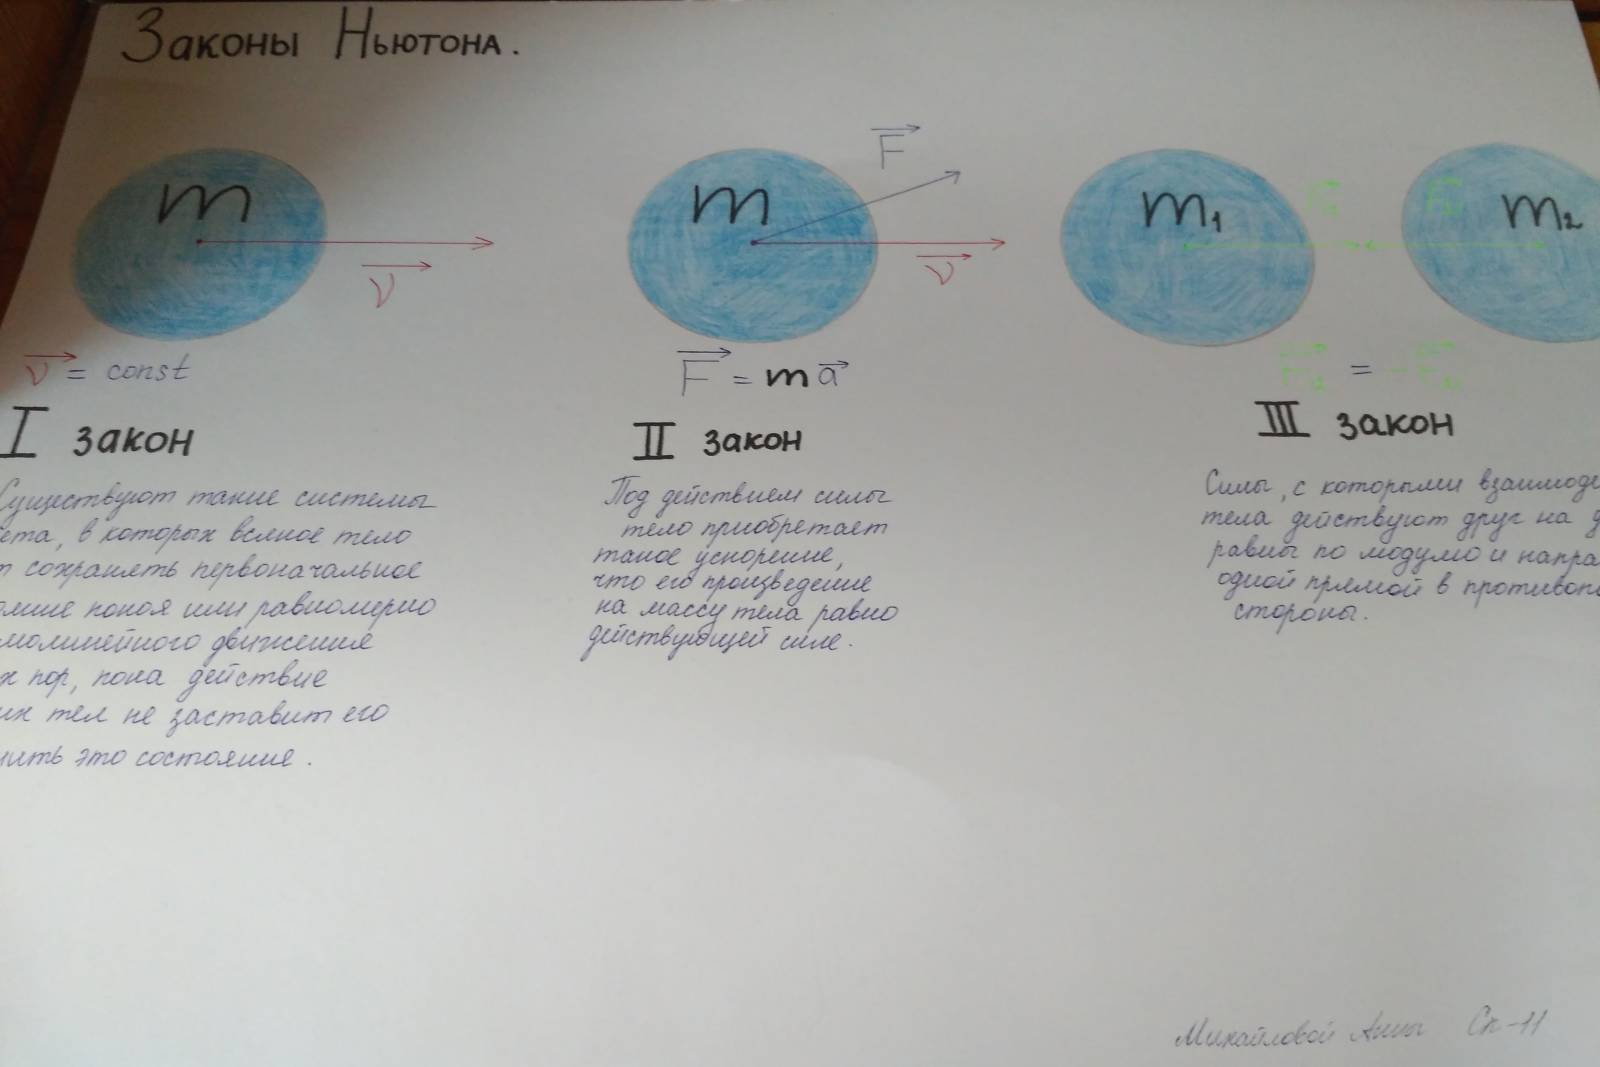 Законы Ньютона.
m
v
v = const
I закон
Существуют такие системы
ета, в которых всякое тело
т сохранять первоначальное
ояние покоя или равномерно
молинейного движения
х пор, пока действие
их тел не заставит его
нить это состояние.
m
F
v
F = ma
II закон
Под действием силы
тело приобретает
такое ускорение,
что его произведение
на массу тела равно
действующей силе.
m₁
m₂
=
III закон
Силы, с которыми взаимоде
тела действуют друг на д
равны по модулю и напра
одной прямой в противопо
стороны.
Михайловой Анны Ск-11